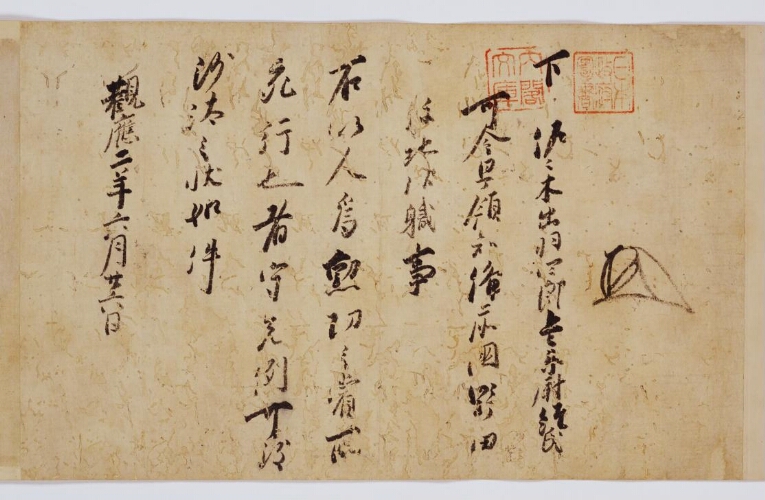 内閣文庫
下　佐々木出羽四郎兵衛尉經氏
可令早領知備前國野田
保地頭職事
右以人爲勲功之賞所
充行也者守先例可致
沙汰之状如件
觀應二年六月廿六日